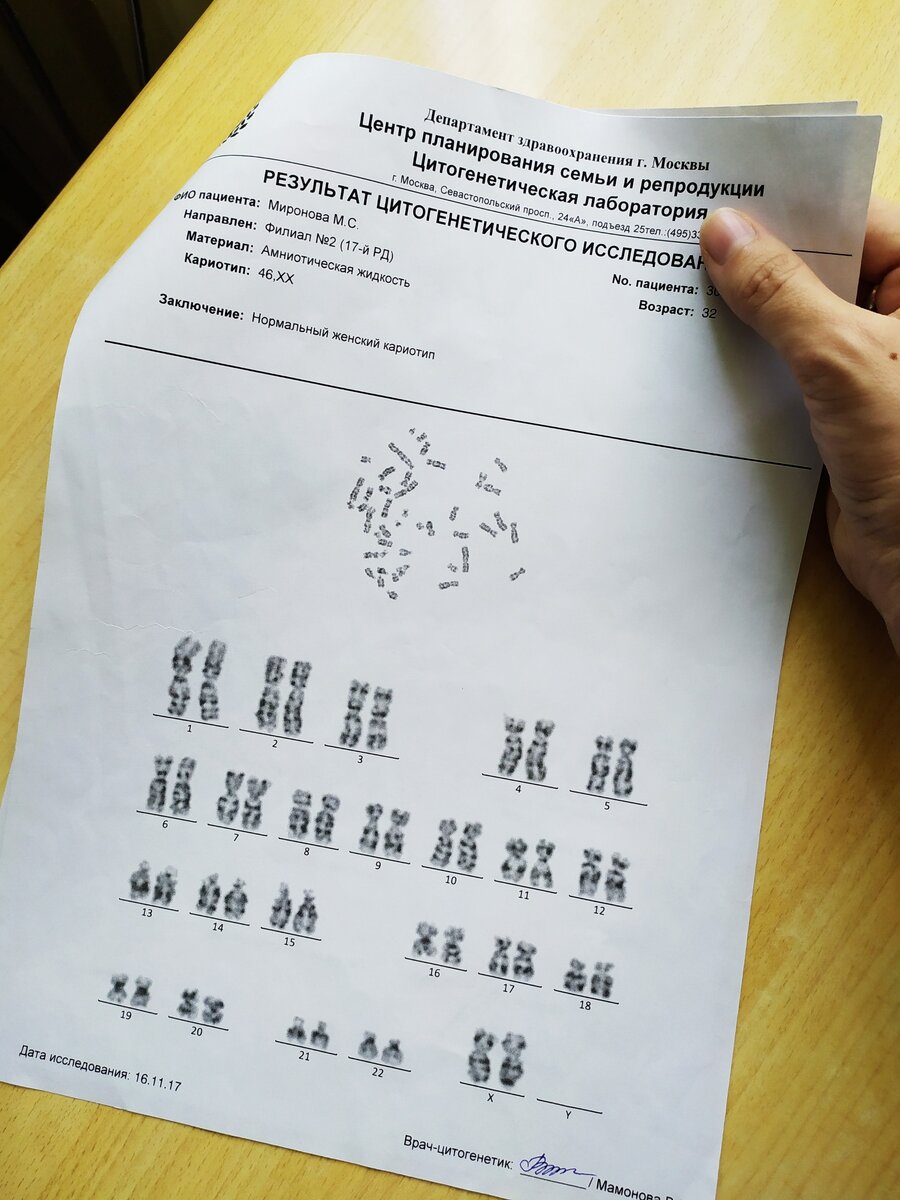 Департамент здравоохранения г. Москвы
Центр планирования семьи и репродукции
Цитогенетическая лаборатория
г. Москва, Севастопольский просп., 24«А», подъезд 25тел.:(495)33
РЕЗУЛЬТАТ ЦИТОГЕНЕТИЧЕСКОГО ИССЛЕДОВАН
ФИО пациента: Миронова М.С.
Направлен: Филиал №2 (17-й РД)
Материал: Амниотическая жидкость
Кариотип: 46,XX
No. пациента:
Возраст: 32
Заключение: Нормальный женский кариотип
1 2 3 4 5
6 7 8 9 10 11 12
13 14 15 16 17 18
19 20 21 22 X Y
Дата исследования: 16.11.17
Врач-цитогенетик: / Мамонова